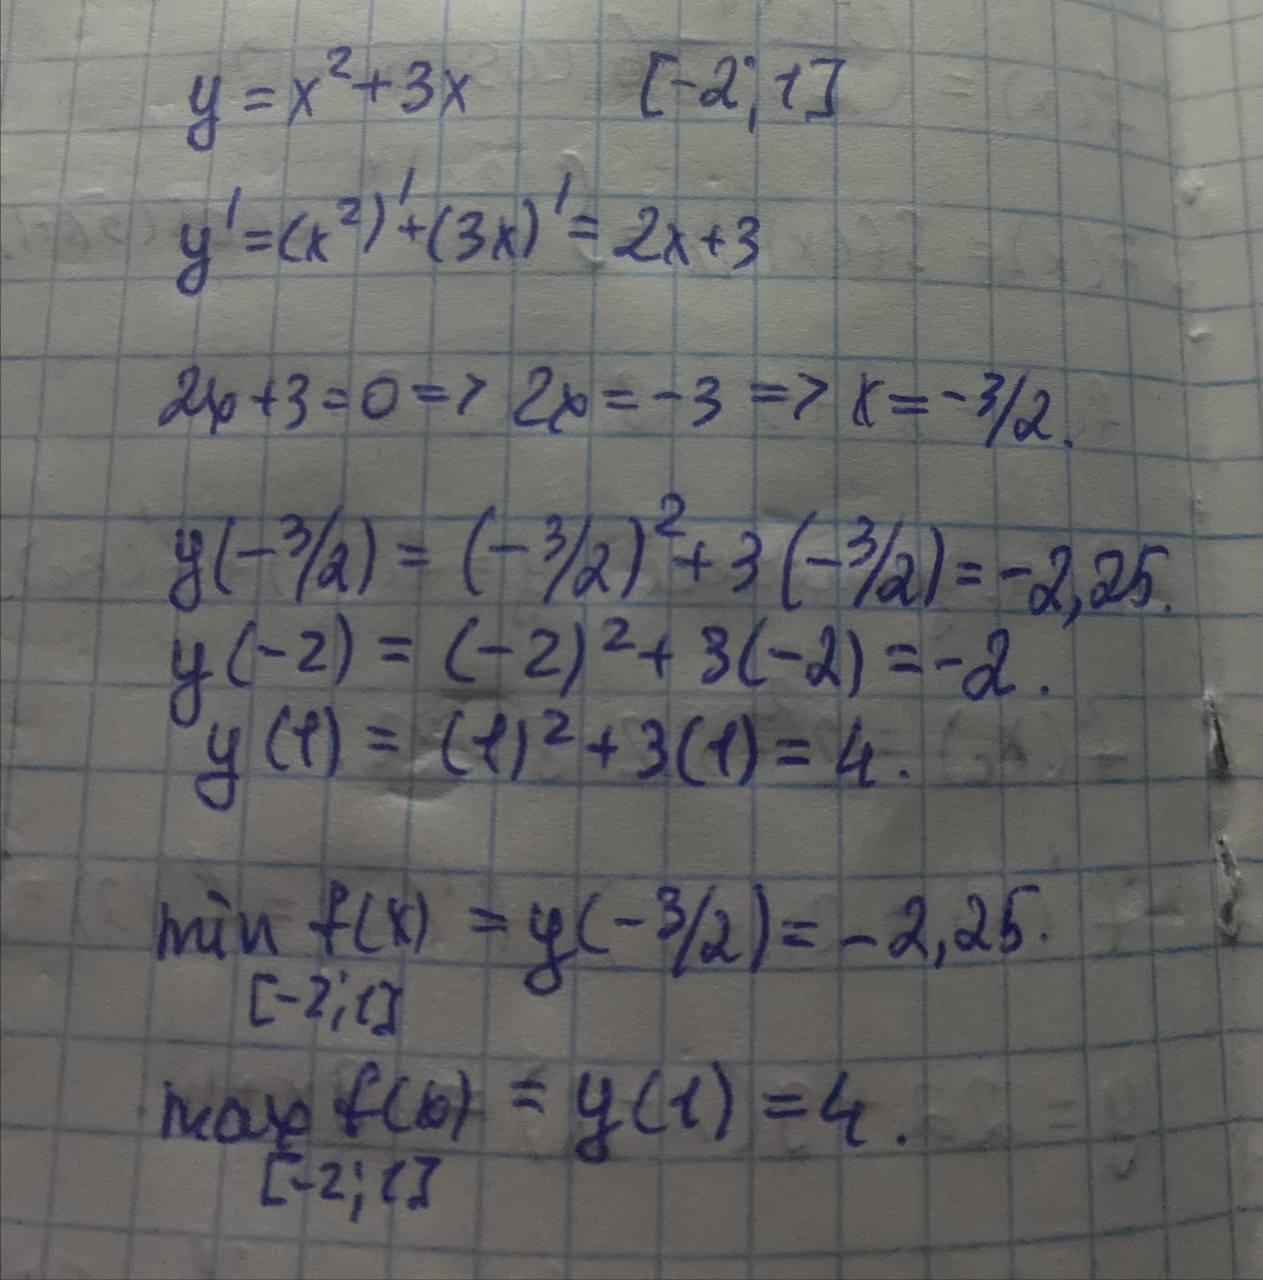 y = x² + 3x [-2; 1]
y' = (x²)' + (3x)' = 2x + 3
2x + 3 = 0 => 2x = -3 => x = -3/2.
y(-3/2) = (-3/2)² + 3(-3/2) = -2,25.
y(-2) = (-2)² + 3(-2) = -2.
y(1) = (1)² + 3(1) = 4.
min f(x) = y(-3/2) = -2,25.
[-2; 1]
max f(x) = y(1) = 4.
[-2; 1]